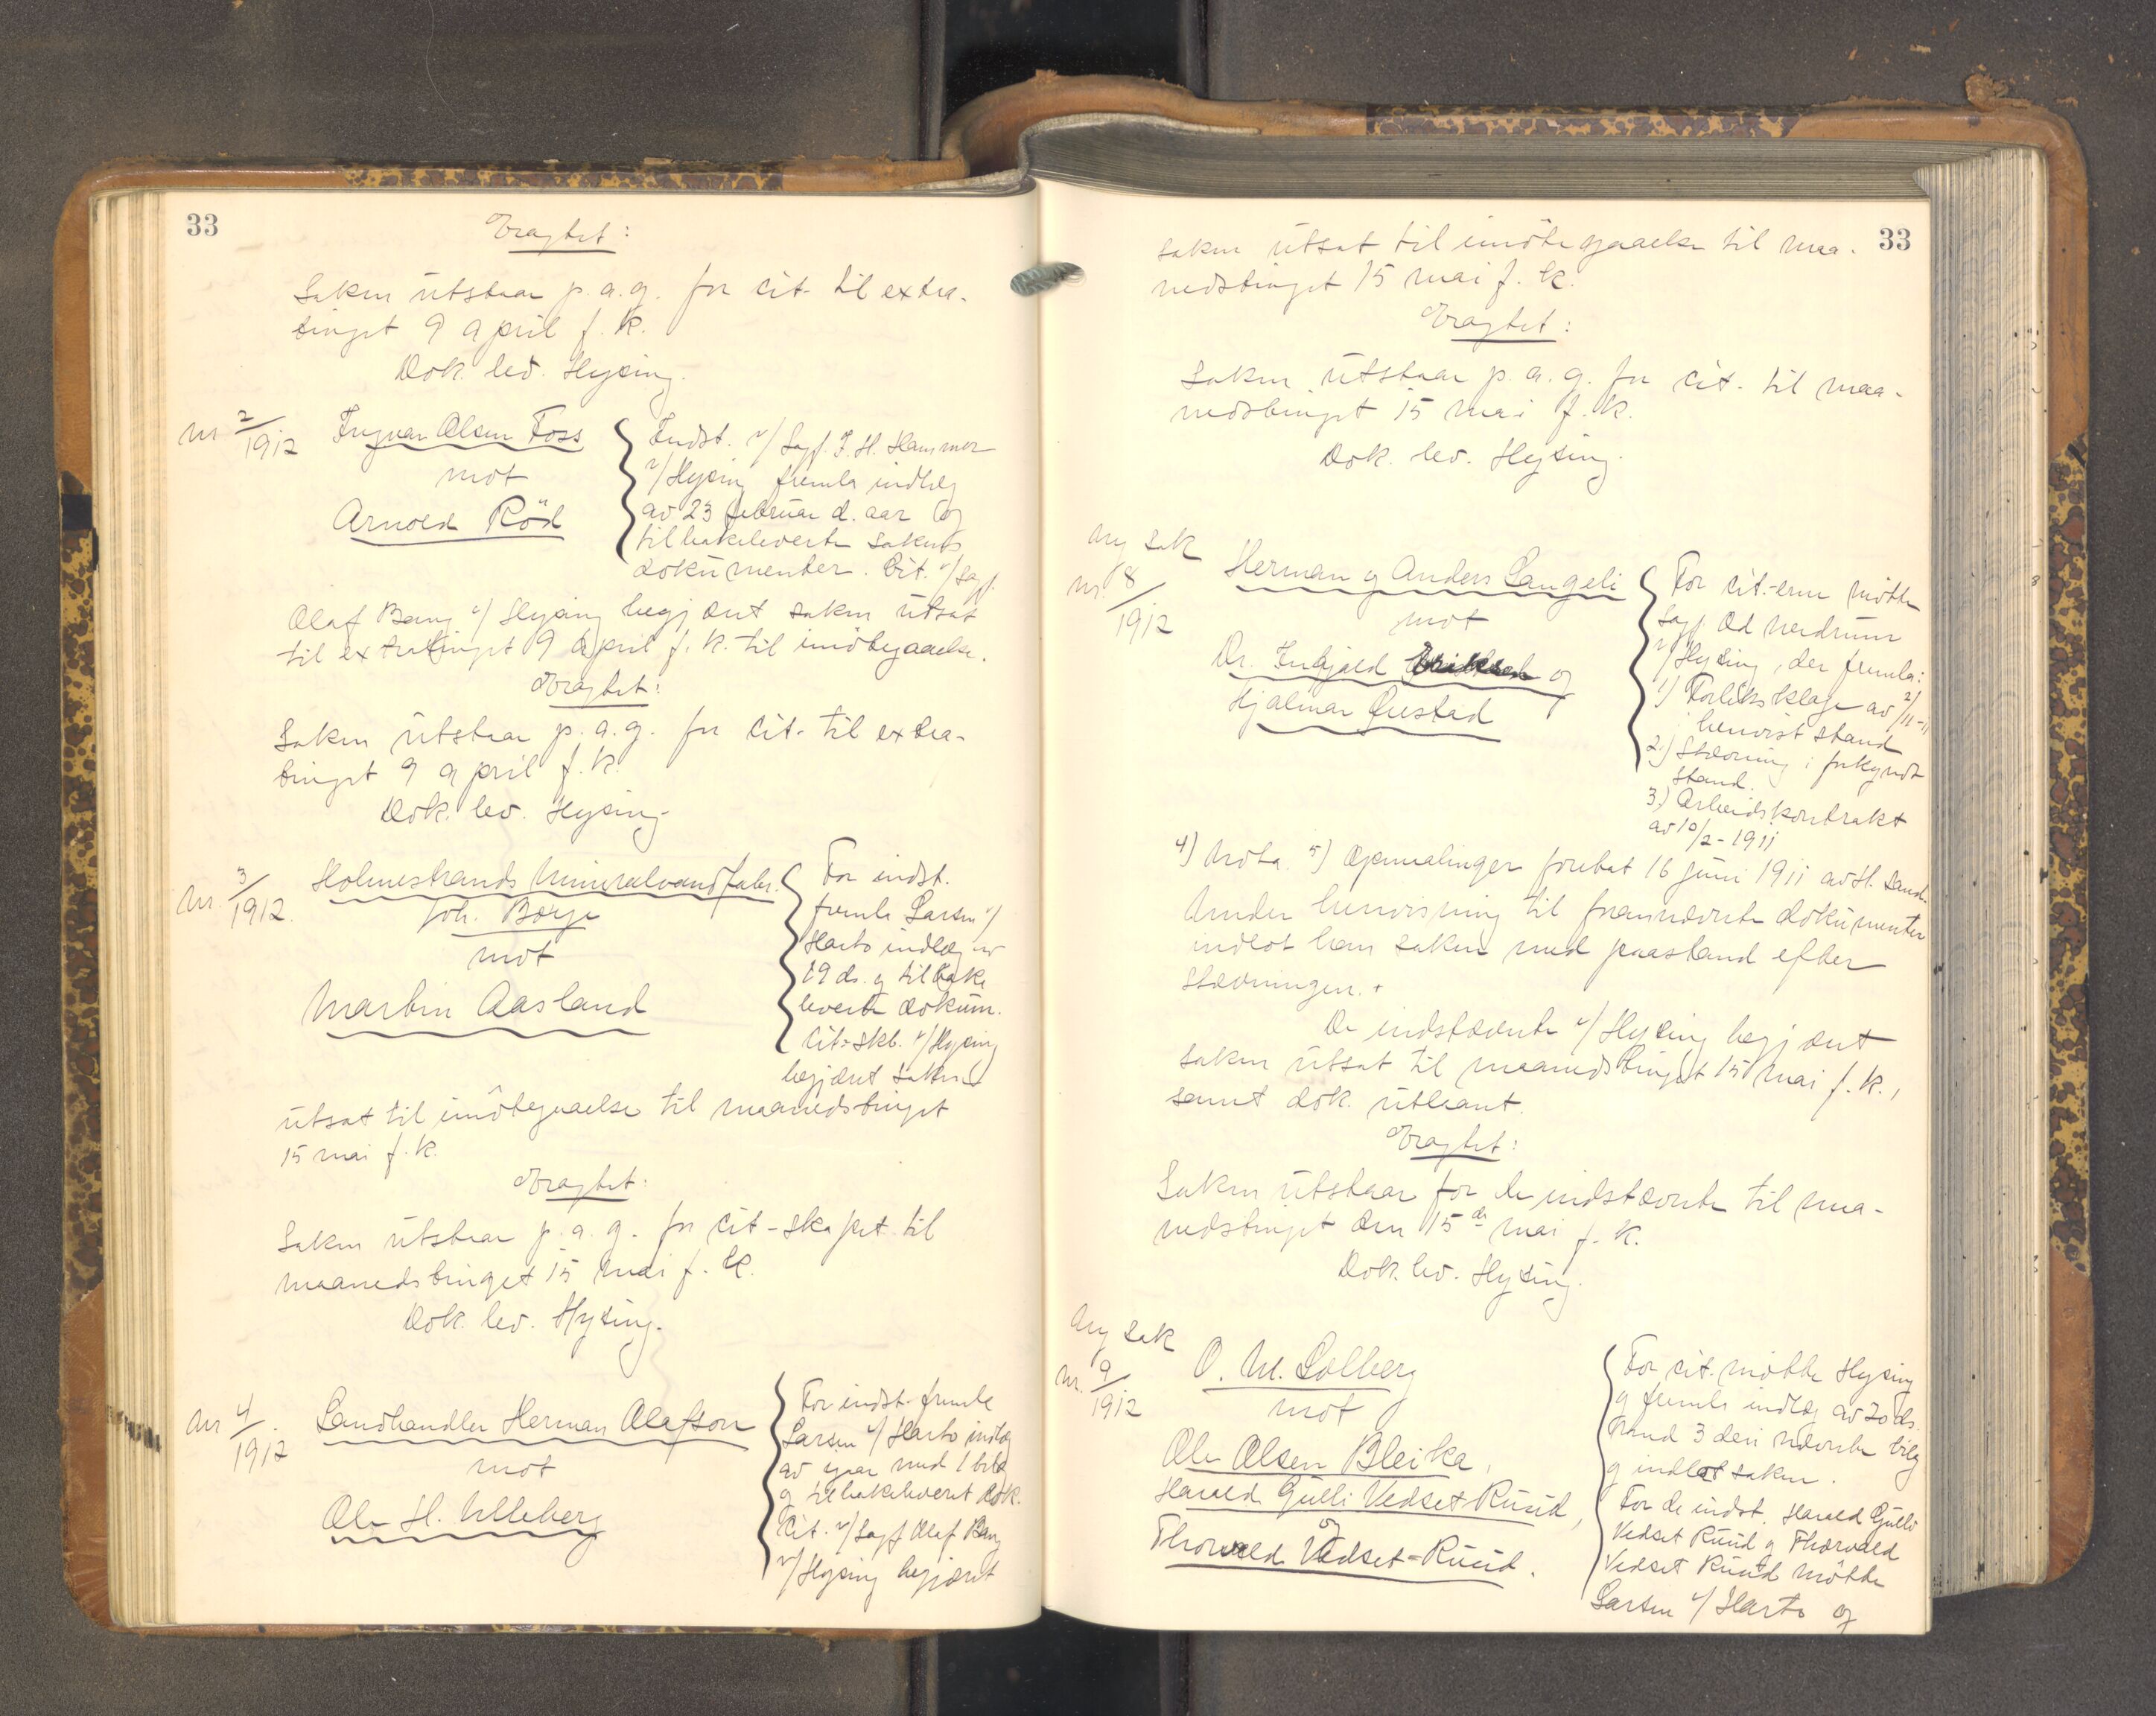 33
Eragtet:
Saken utstaar p.a.g. for cit. til extra-
tinget 9 april f.k.
Dok. lev. Hysing.
Nr 2/1912
Ingvar Olsen Foss
mot
Arnold Röd
Indst. v/ Sagf. F. H. Hammer
v/ Hysing fremla indlæg
av 23 februar d. aar og
tilbakeleverte sakens
dokumenter. Cit. v/ Sagf.
Olaf Bang v/ Hysing begjært saken utsat
til extratinget 9 april f.k. til imötegaaelse.
Eragtet:
Saken utstaar p.a.g. for cit. til extra-
tinget 9 april f.k.
Dok. lev. Hysing.
Nr. 3/1912.
Holmestrands Mineralvandfabr.
Joh. Borge
mot
Martin Aasland
For indst.
fremla Larsen v/
Harto indlæg av
19 ds. og tilbake
leverte dokum.
Cit-skb. v/ Hysing
begjært saken
utsat til imötegaaelse til maanedstinget
15 mai f.k.
Eragtet:
Saken utstaar p.a.g. for cit-skapet til
maanedstinget 15 mai f.k.
Dok. lev. Hysing.
Nr 4/1912
Landhandler Herman Olafson
mot
Ole H. Ulleberg
For indst. fremla
Larsen v/ Harto indlæg
av igaar med 1 bilag
og tilbakeleveret dok.
Cit. v/ Sagf Olaf Bang
v/ Hysing begjært
33
saken utsat til imötegaaelse til maa-
nedstinget 15 mai f.k.
Eragtet:
Saken utstaar p.a.g. for cit. til maa-
nedstinget 15 mai f.k.
Dok. lev. Hysing.
Ny sak
Nr. 8/1912
Herman og Anders Langeli
mot
Dr. Indgjald og
Hjalmar Questad
For cit.-erne mötte
Sagf. Od Nerdrum
v/ Hysing, der fremla:
1) Forliksklage av 2/11-11
i henvist stand
2.) Stævning i forkyndt
stand.
3.) Arbeidskontrakt
av 10/2-1911
4) Nota. 5) Opmaalinger foretat 16 juni 1911 av H. Sand.
Under henvisning til forannævnte dokumenter
indlot han saken med paastand efter
stævningen.
De indstævnte v/ Hysing begjært
saken utsat til maanedstinget 15 mai f.k.,
samt dok. utlaant.
Eragtet:
Saken utstaar for de indstævnte til maa-
nedstinget den 15de mai f.k.
Dok. lev. Hysing.
Ny sak
Nr. 9/1912
O. M. Solberg
mot
Ole Olsen Bleika,
Harald Gulli Vedset-Ruud,
og
Thorvald Vedset-Ruud.
For cit. mötte Hysing
og fremla indlæg av 20 ds.
med 3 deri nævnte bilag
og indlot saken.
For de indst. Harald Gulli
Vedset Ruud og Thorvald
Vedset Ruud mötte
Larsen v/ Harto og